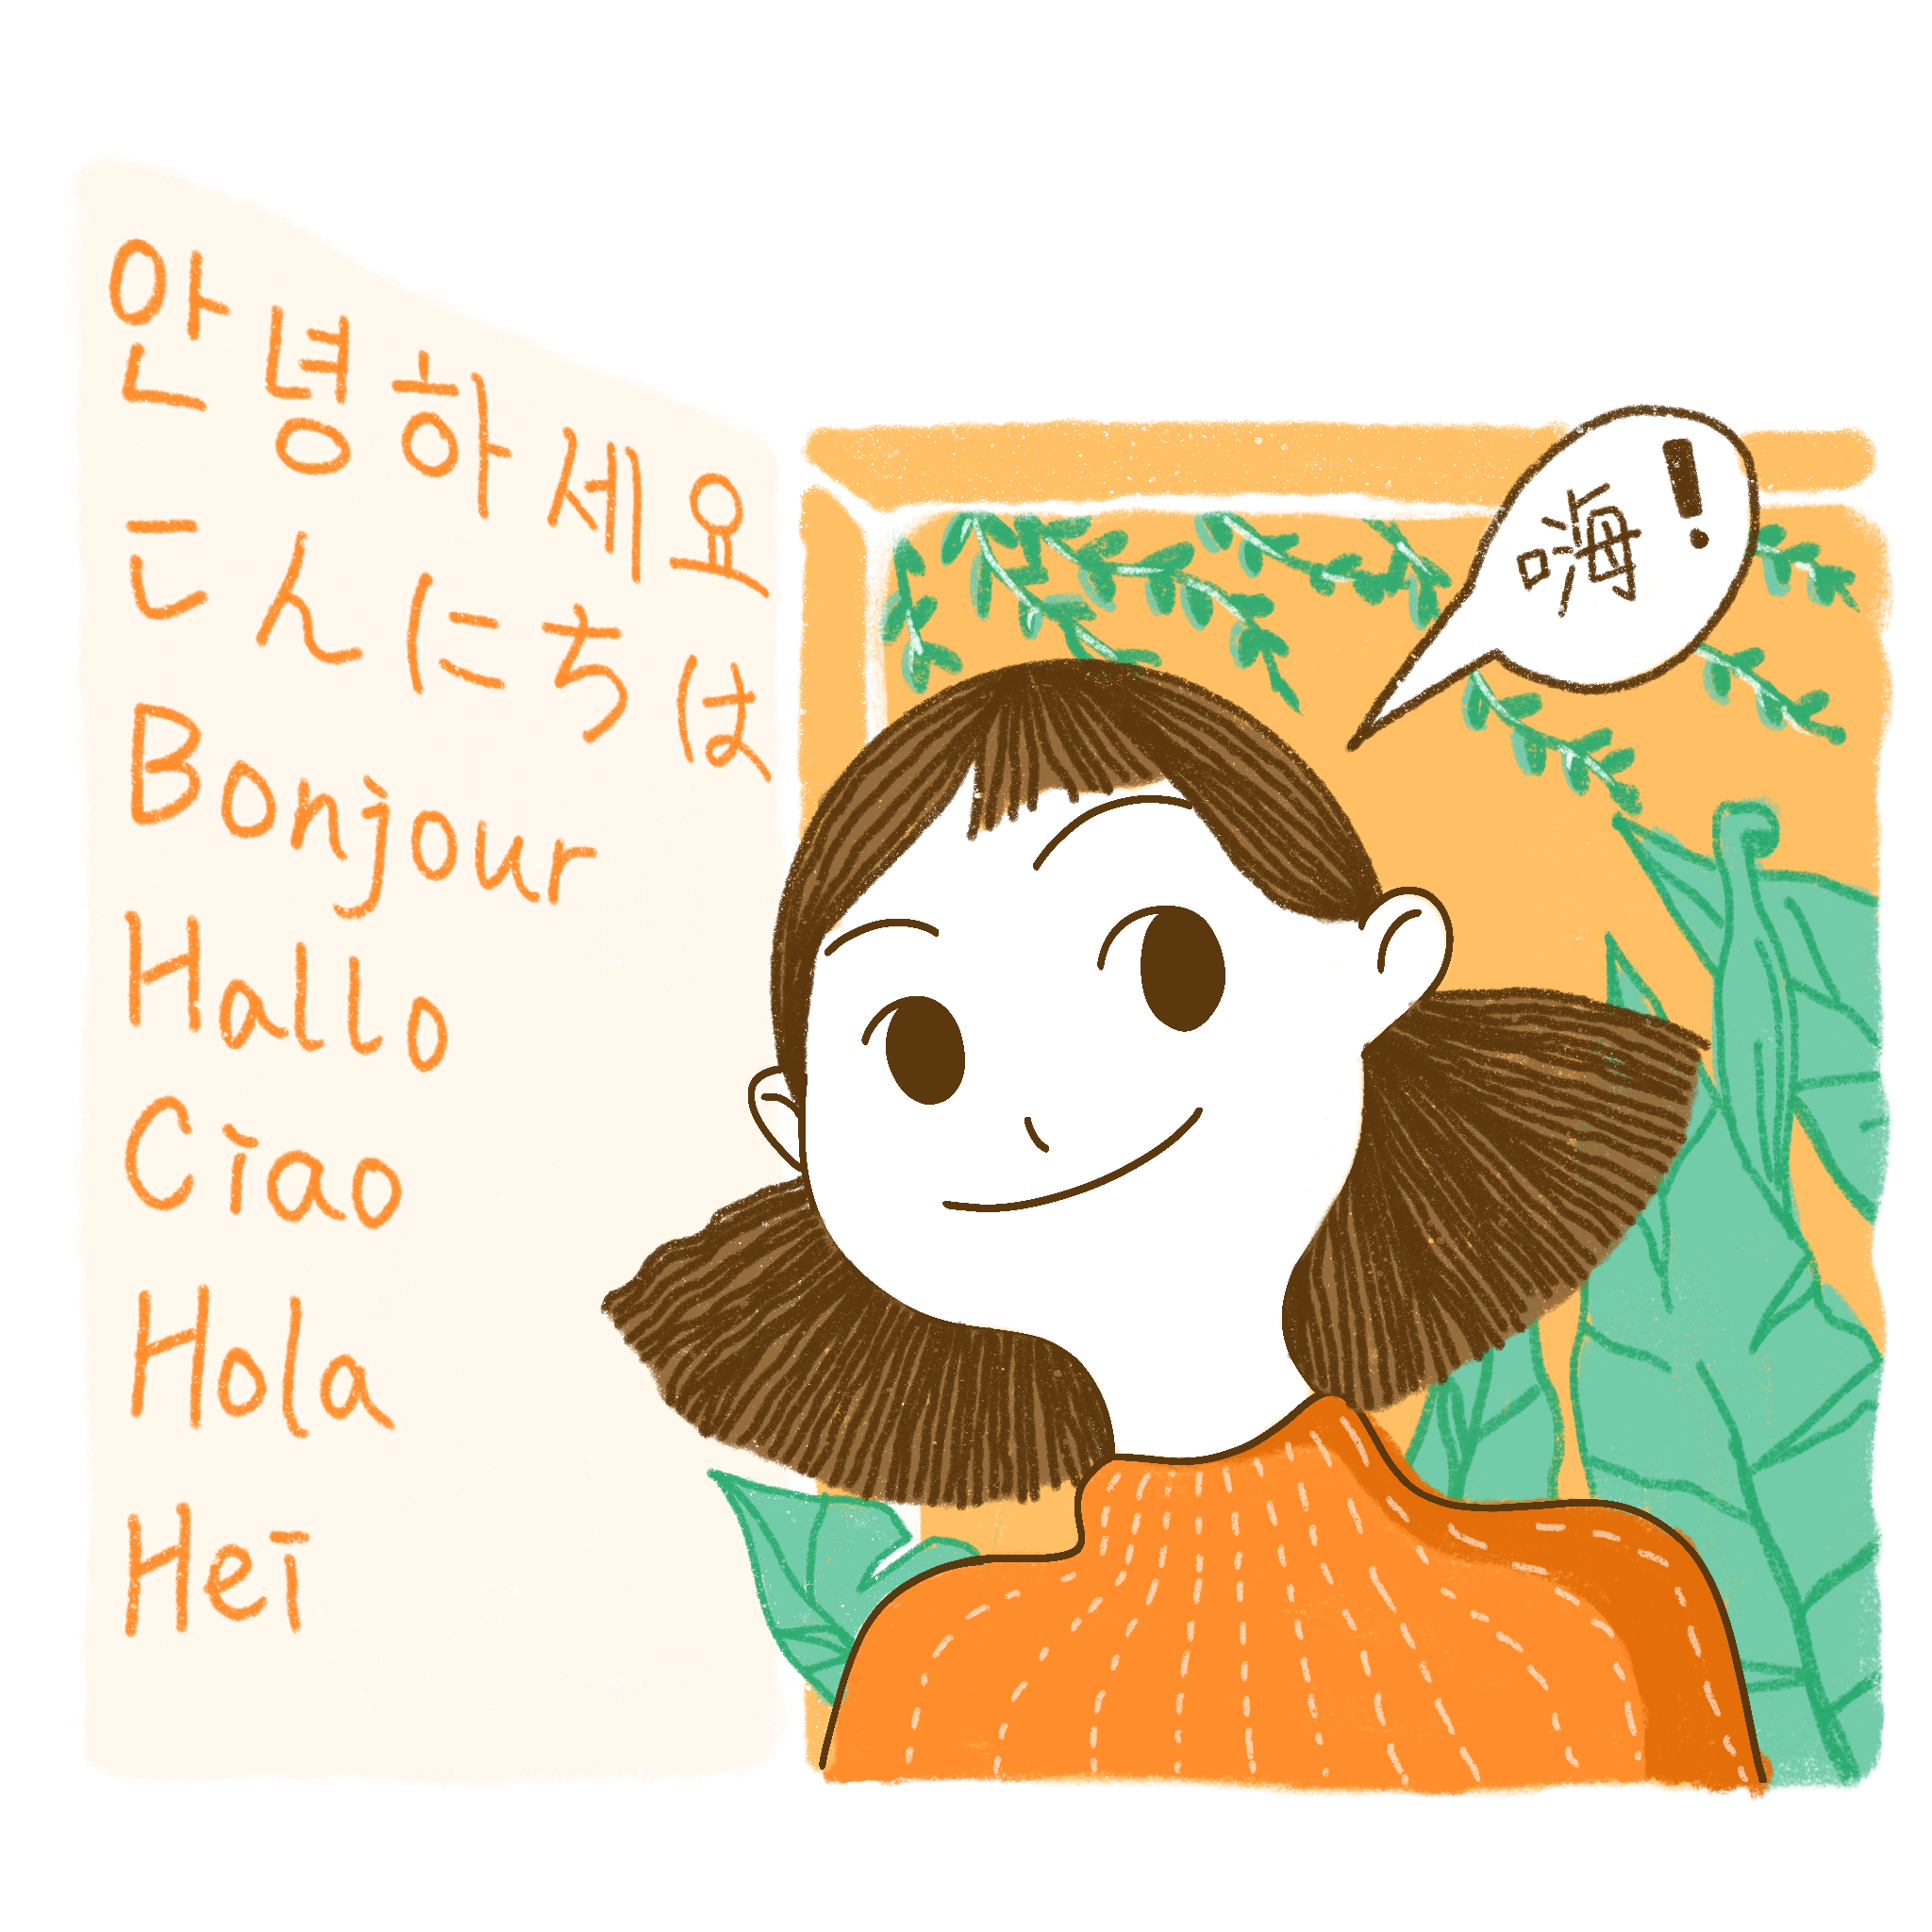 안녕하세요
こんにちは
Bonjour
Hallo
Ciao
Hola
Hei
嗨!